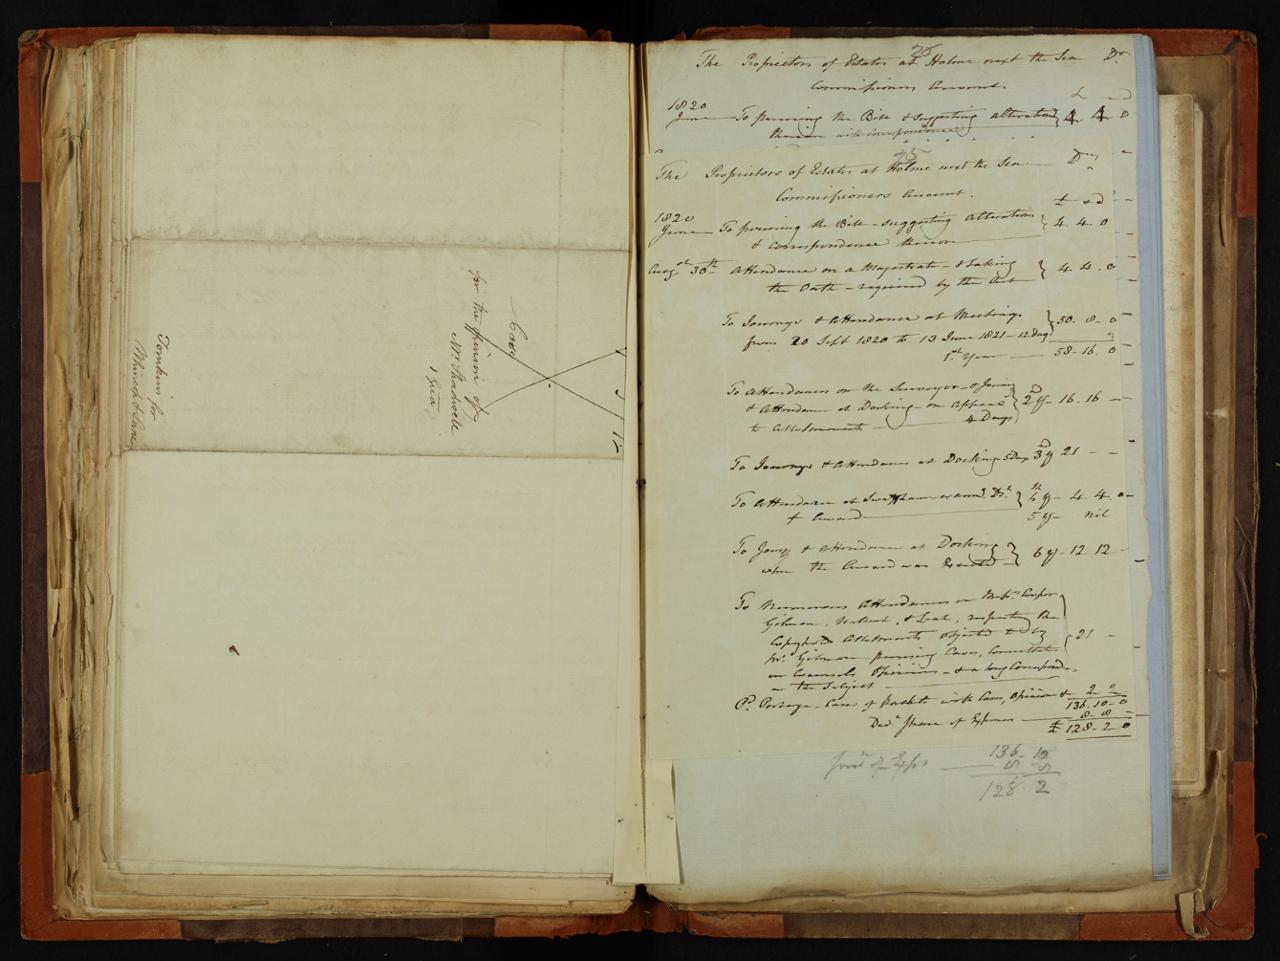 Case
for the opinion of
Mr. Shadwell
1 Gua
Tomkins for
Whincop & Lane
26
The Proprietors of Estates at Holme next the Sea Dr.
Commissioners Account.
£ s d
1820
June To perusing the Bill & suggesting alterations 4. 4. 0
thereon with Correspondence
25
The Proprietors of Estates at Holme next the Sea Dr.
Commissioners Account.
£ s d
1820
June To perusing the Bill - suggesting Alterations 4. 4. 0
& Correspondence thereon
Augst 30th Attendance on a Magistrate - & taking 4. 4. 0
the Oath - required by the Act
To Journeys & Attendance at Meetings 50. 8 - 0
from 20 Sept 1820 to 13 June 1821 - 12 Days
1st Year 58 - 16. 0
To Attendances on the Surveyor - & Journey 2d Yr - 16. 16 -
& Attendance at Docking - on Appeals
to Allotments 4 Days
To Journeys & Attendance at Docking 5 Days 3d Yr 21 - -
To Attendance at Swaffham examg. Dft. 4th Yr - 4. 4. 0
& Award 5 Yr - nil
To Jourys & Attendance at Docking 6 Yr - 12. 12
when the Award was Executed
To Numerous Attendances on Messrs. Cooper
Gilman, & Leak, respecting the
Copyhold Allotments objected to by 21 -
Mr. Gilman perusing Cases, Consultations
on Counsels Opinions - & a long Correspondence
on the Subject
Pd. Postage - Carre of parcels with Cases, Opinions & 2 - 2
136. 10 - 0
Ded. Share of Expenses 8 - 8
£ 128 - 2 - 0
of Exps 136. 10
8 8
128 2